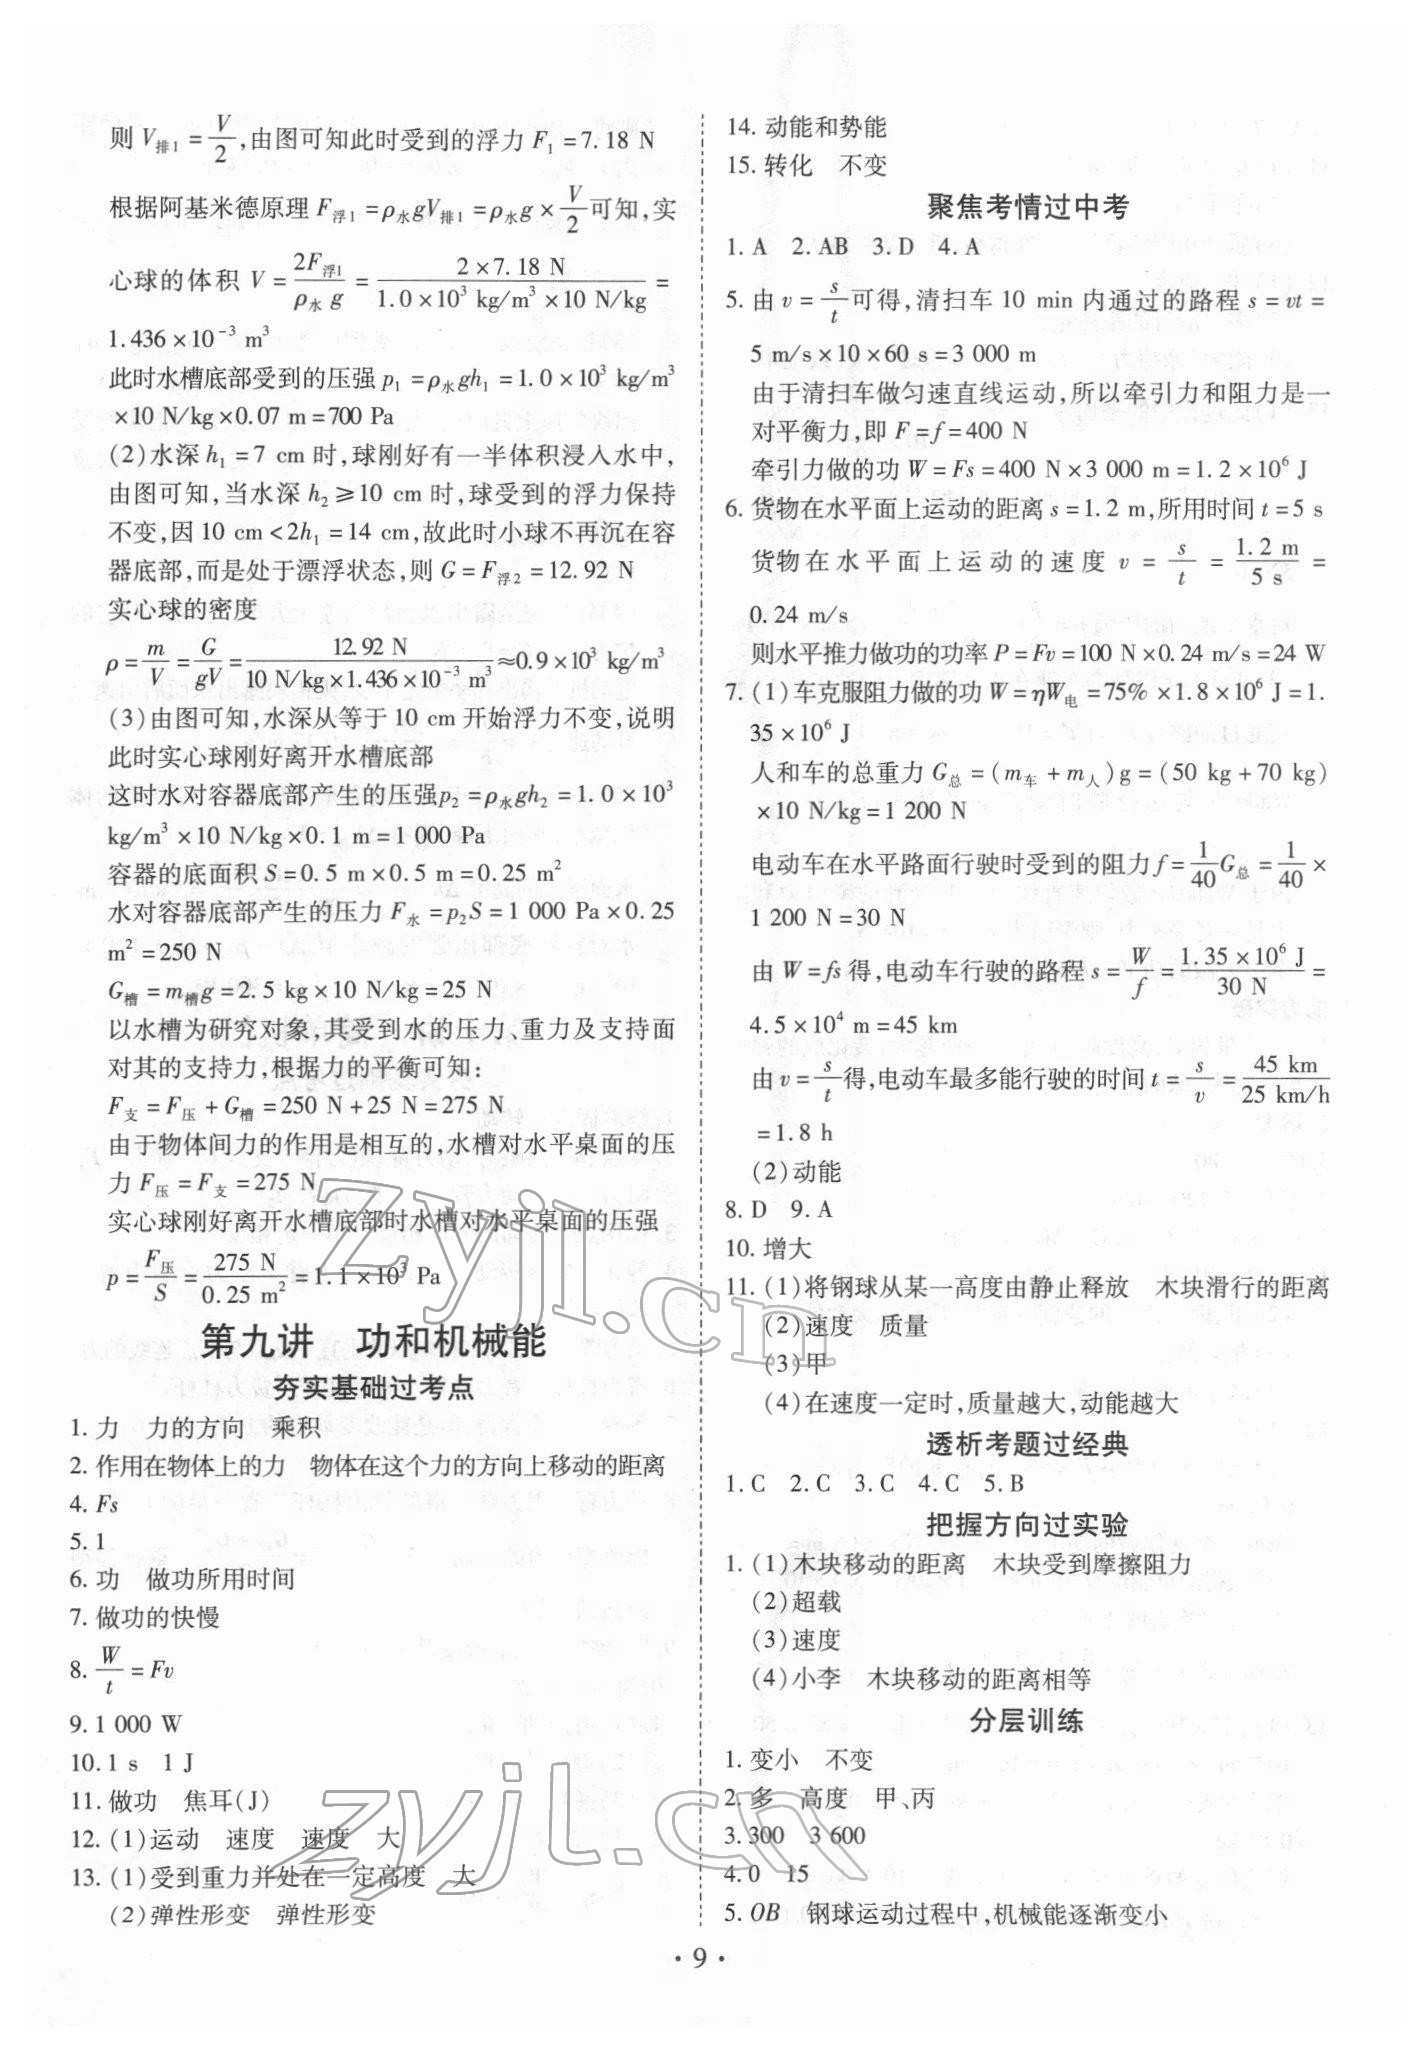 则 V排1 = V/2,由图可知此时受到的浮力 F₁ = 7.18 N
根据阿基米德原理 F浮1 = ρ水gV排1 = ρ水g × V/2 可知,实
心球的体积 V = 2F浮1/ρ水 g = 2×7.18 N/1.0×10³ kg/m³×10 N/kg =
1.436×10⁻³ m³
此时水槽底部受到的压强 p₁ = ρ水gh₁ = 1.0×10³ kg/m³
×10 N/kg×0.07 m=700 Pa
(2)水深 h₁ = 7 cm 时,球刚好有一半体积浸入水中,
由图可知,当水深 h₂ ≥10 cm 时,球受到的浮力保持
不变,因 10 cm<2h₁ = 14 cm,故此时小球不再沉在容
器底部,而是处于漂浮状态,则 G=F浮2 = 12.92 N
实心球的密度
ρ = m/V = G/gV = 12.92 N/10 N/kg×1.436×10⁻³ m³ ≈0.9×10³ kg/m³
(3)由图可知,水深从等于 10 cm 开始浮力不变,说明
此时实心球刚好离开水槽底部
这时水对容器底部产生的压强p₂ = ρ水gh₂ = 1.0×10³
kg/m³×10 N/kg×0.1 m=1 000 Pa
容器的底面积 S=0.5 m×0.5 m=0.25 m²
水对容器底部产生的压力 F水 = p₂S=1 000 Pa×0.25
m² = 250 N
G槽 = m槽g=2.5 kg×10 N/kg=25 N
以水槽为研究对象,其受到水的压力、重力及支持面
对其的支持力,根据力的平衡可知:
F支 = F压 + G槽 = 250 N+25 N=275 N
由于物体间力的作用是相互的,水槽对水平桌面的压
力 F压 = F支 = 275 N
实心球刚好离开水槽底部时水槽对水平桌面的压强
p = F压/S = 275 N/0.25 m² = 1.1×10³ Pa
第九讲 功和机械能
夯实基础过考点
1. 力 力的方向 乘积
2. 作用在物体上的力 物体在这个力的方向上移动的距离
4. Fs
5. 1
6. 功 做功所用时间
7. 做功的快慢
8. W/t = Fv
9. 1 000 W
10. 1 s 1 J
11. 做功 焦耳(J)
12. (1)运动 速度 速度 大
13. (1)受到重力并处在一定高度 大
(2)弹性形变 弹性形变
14. 动能和势能
15. 转化 不变
聚焦考情过中考
1. A 2. AB 3. D 4. A
5. 由 v = s/t 可得,清扫车 10 min 内通过的路程 s = vt =
5 m/s×10×60 s=3 000 m
由于清扫车做匀速直线运动,所以牵引力和阻力是一
对平衡力,即 F=f=400 N
牵引力做的功 W=Fs=400 N×3 000 m=1.2×10⁶ J
6. 货物在水平面上运动的距离 s=1.2 m,所用时间 t=5 s
货物在水平面上运动的速度 v = s/t = 1.2 m/5 s =
0.24 m/s
则水平推力做功的功率 P=Fv=100 N×0.24 m/s=24 W
7. (1)车克服阻力做的功 W=ηW电 = 75%×1.8×10⁶ J=1.
35×10⁶ J
人和车的总重力 G总 = (m车 + m人)g=(50 kg+70 kg)
×10 N/kg=1 200 N
电动车在水平路面行驶时受到的阻力 f= 1/40 G总 = 1/40 ×
1 200 N=30 N
由 W=fs 得,电动车行驶的路程 s= W/f = 1.35×10⁶ J/30 N =
4.5×10⁴ m=45 km
由 v= s/t 得,电动车最多能行驶的时间 t = s/v = 45 km/25 km/h
=1.8 h
(2)动能
8. D 9. A
10. 增大
11. (1)将钢球从某一高度由静止释放 木块滑行的距离
(2)速度 质量
(3)甲
(4)在速度一定时,质量越大,动能越大
透析考题过经典
1. C 2. C 3. C 4. C 5. B
把握方向过实验
1. (1)木块移动的距离 木块受到摩擦阻力
(2)超载
(3)速度
(4)小李 木块移动的距离相等
分层训练
1. 变小 不变
2. 多 高度 甲、丙
3. 300 3 600
4. 0 15
5. OB 钢球运动过程中,机械能逐渐变小
· 9 ·
zyjl.cn
zyjl.cn